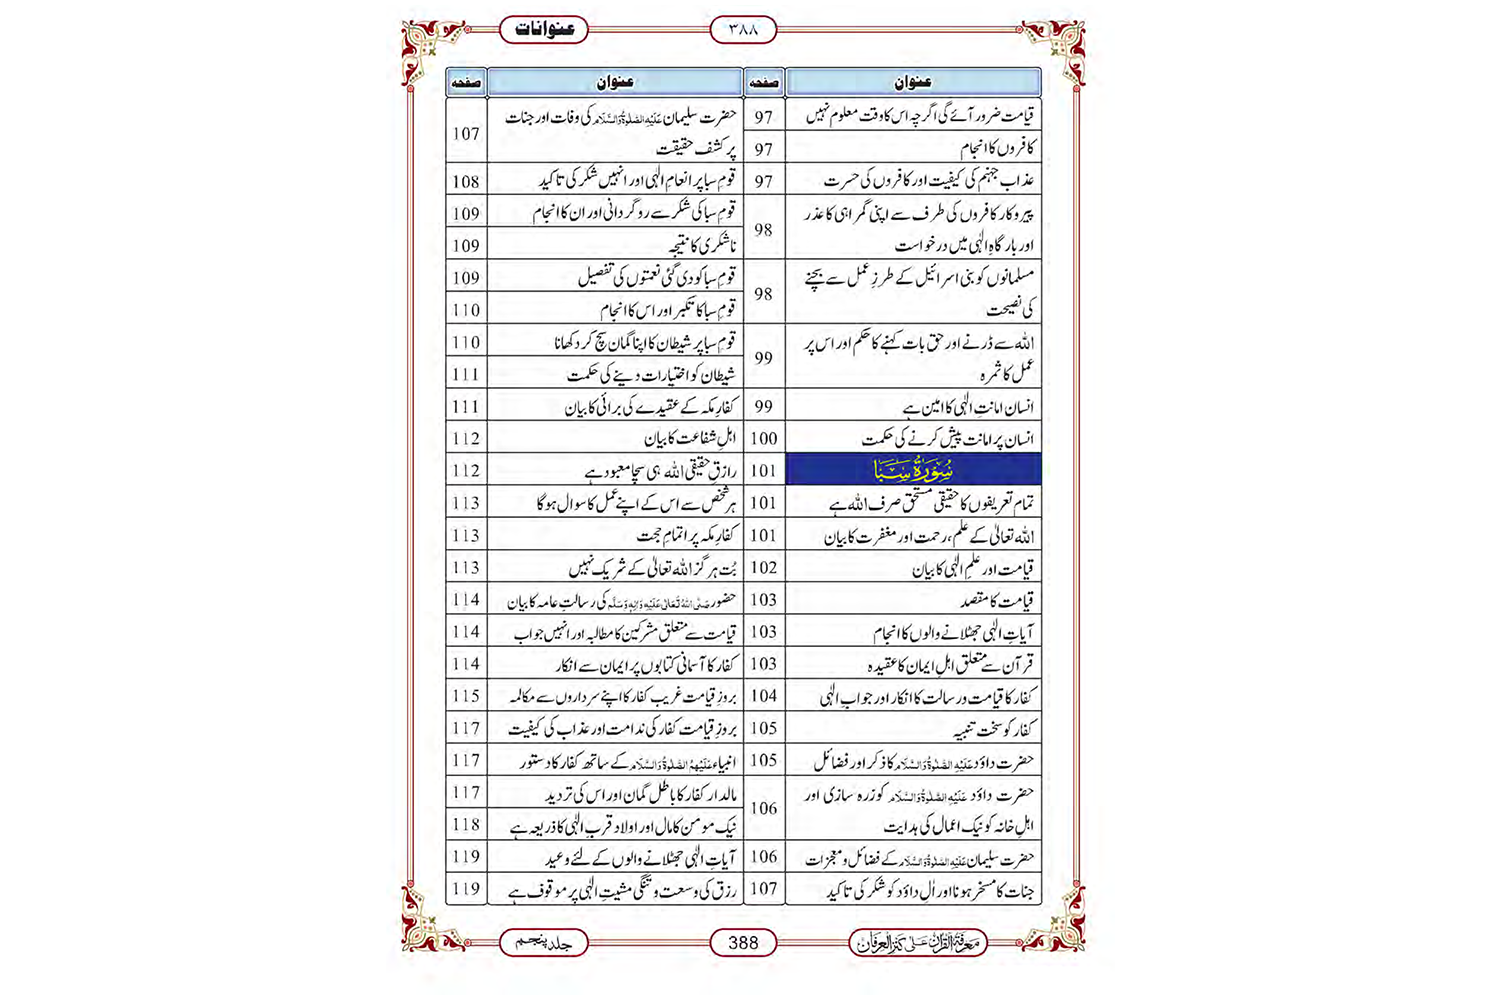 عنوانات
۳۸۸
عنوان صفحہ
قیامت ضرور آئے گی اگرچہ اس کا وقت معلوم نہیں 97
کافروں کا انجام 97
عذاب جہنم کی کیفیت اور کافروں کی حسرت 97
پیروکار کافروں کی طرف سے اپنی گمراہی کا عذر
اور بارگاہِ الٰہی میں درخواست 98
مسلمانوں کو بنی اسرائیل کے طرزِ عمل سے بچنے
کی نصیحت 98
اللہ سے ڈرنے اور حق بات کہنے کا حکم اور اس پر
عمل کا ثمرہ 99
انسان امانتِ الٰہی کا امین ہے 99
انسان پر امانت پیش کرنے کی حکمت 100
سُوْرَۃُ سَبَا 101
تمام تعریفوں کا حقیقی مستحق صرف اللہ ہے 101
اللہ تعالیٰ کے علم، رحمت اور مغفرت کا بیان 101
قیامت اور علمِ الٰہی کا بیان 102
قیامت کا مقصد 103
آیاتِ الٰہی جھٹلانے والوں کا انجام 103
قرآن سے متعلق اہلِ ایمان کا عقیدہ 103
کفار کا قیامت و رسالت کا انکار اور جوابِ الٰہی 104
کفار کو سخت تنبیہ 105
حضرت داؤد عَلَیْہِ الصَّلٰوۃُ وَالسَّلَام کا ذکر اور فضائل 105
حضرت داؤد عَلَیْہِ الصَّلٰوۃُ وَالسَّلَام کو زرہ سازی اور
اہلِ خانہ کو نیک اعمال کی ہدایت 106
حضرت سلیمان عَلَیْہِ الصَّلٰوۃُ وَالسَّلَام کے فضائل و معجزات 106
جنات کا مسخر ہونا اور اٰلِ داؤد کو شکر کی تاکید 107
عنوان صفحہ
حضرت سلیمان عَلَیْہِ الصَّلٰوۃُ وَالسَّلَام کی وفات اور جنات
پر کشف حقیقت 107
قومِ سبا پر انعامِ الٰہی اور انہیں شکر کی تاکید 108
قومِ سبا کی شکر سے روگردانی اور ان کا انجام 109
ناشکری کا نتیجہ 109
قومِ سبا کو دی گئی نعمتوں کی تفصیل 109
قومِ سبا کا تکبر اور اس کا انجام 110
قومِ سبا پر شیطان کا اپنا گمان سچ کر دکھانا 110
شیطان کو اختیارات دینے کی حکمت 111
کفارِ مکہ کے عقیدے کی برائی کا بیان 111
اہلِ شفاعت کا بیان 112
رازقِ حقیقی اللہ ہی سچا معبود ہے 112
ہر شخص سے اس کے اپنے عمل کا سوال ہوگا 113
کفارِ مکہ پر اتمامِ حجت 113
بُت ہرگز اللہ تعالیٰ کے شریک نہیں 113
حضور صَلَّی اللہُ تَعَالٰی عَلَیْہِ وَاٰلِہٖ وَسَلَّم کی رسالتِ عامہ کا بیان 114
قیامت سے متعلق مشرکین کا مطالبہ اور انہیں جواب 114
کفار کا آسمانی کتابوں پر ایمان سے انکار 114
بروزِ قیامت غریب کفار کا اپنے سرداروں سے مکالمہ 115
بروزِ قیامت کفار کی ندامت اور عذاب کی کیفیت 117
انبیاء عَلَیْہِمُ الصَّلٰوۃُ وَالسَّلَام کے ساتھ کفار کا دستور 117
مالدار کفار کا باطل گمان اور اس کی تردید 117
نیک مومن کا مال اور اولاد قربِ الٰہی کا ذریعہ ہے 118
آیاتِ الٰہی جھٹلانے والوں کے لئے وعید 119
رزق کی وسعت و تنگی مشیتِ الٰہی پر موقوف ہے 119
مَعْرِفَۃُ الْقُرْاٰن عَلٰی کَنْزِ الْعِرْفَان
388
جلد پنجم